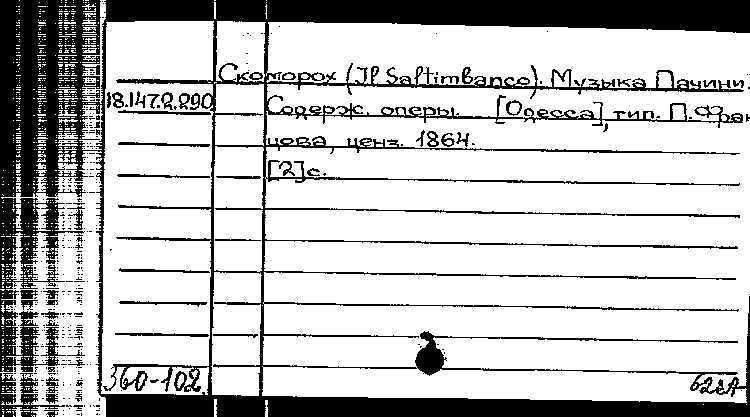 Скоморох (Il Saltimbanco). Музыка Пачини.
18.147.2.290 Содерж. оперы. [Одесса], тип. П. Фран
цова, ценз. 1864.
[2]с.
360-102